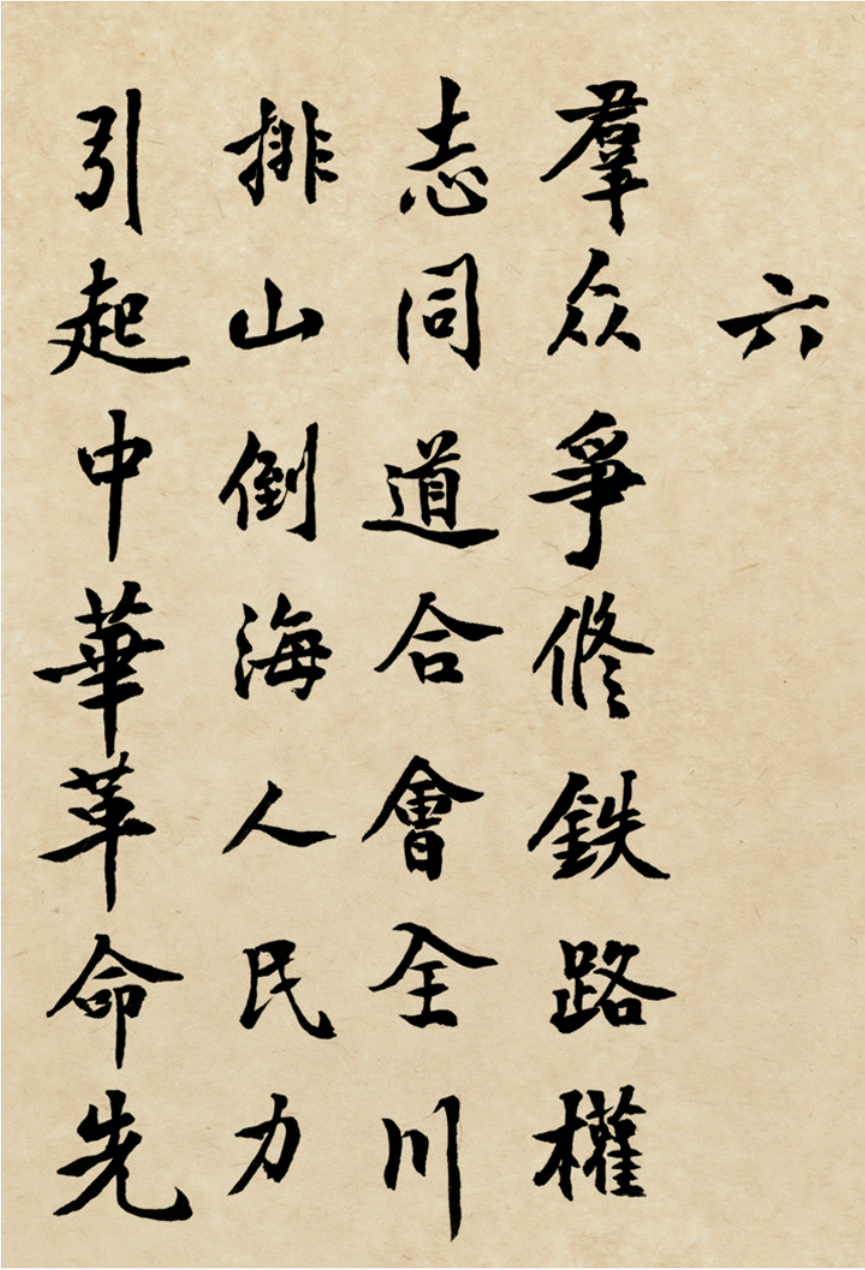 六
羣众爭修鉄路權
志同道合會全川
排山倒海人民力
引起中華革命先